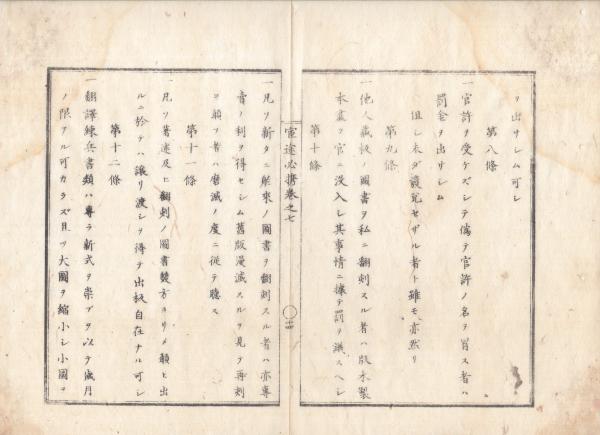 リ出サシム可シ
第八條
一官許ヲ受ケズシテ偽テ官許ノ名ヲ冒ス者ハ
罰金ヲ出サシム
但シ未ダ發兌セザル者ト雖モ亦然リ
第九條
一他人藏板ノ圖書ヲ私ニ翻刻スル者ハ版木製
本盡ク官ニ没入シ其事情ニ據テ罰ヲ議スヘシ
第十條
官途必携巻之七
十四
一凡ソ新タニ舶來ノ圖書ヲ翻刻スル者ハ亦專
賣ノ利ヲ得セシム舊版漫滅スルヲ見テ再刻
ヲ願フ者ハ磨滅ノ度ニ從テ聴ス
第十一條
一凡ソ著述及ヒ翻刻ノ圖書雙方ヨリ願ヒ出
ルニ於テハ讓リ渡シヲ得テ出板自在ナル可シ
第十二條
一翻譯練兵書類ハ專ラ新式ヲ崇ブヲ以テ歳月
ノ限アル可カラズ且ツ大圖ヲ縮小シ小圖ヲ